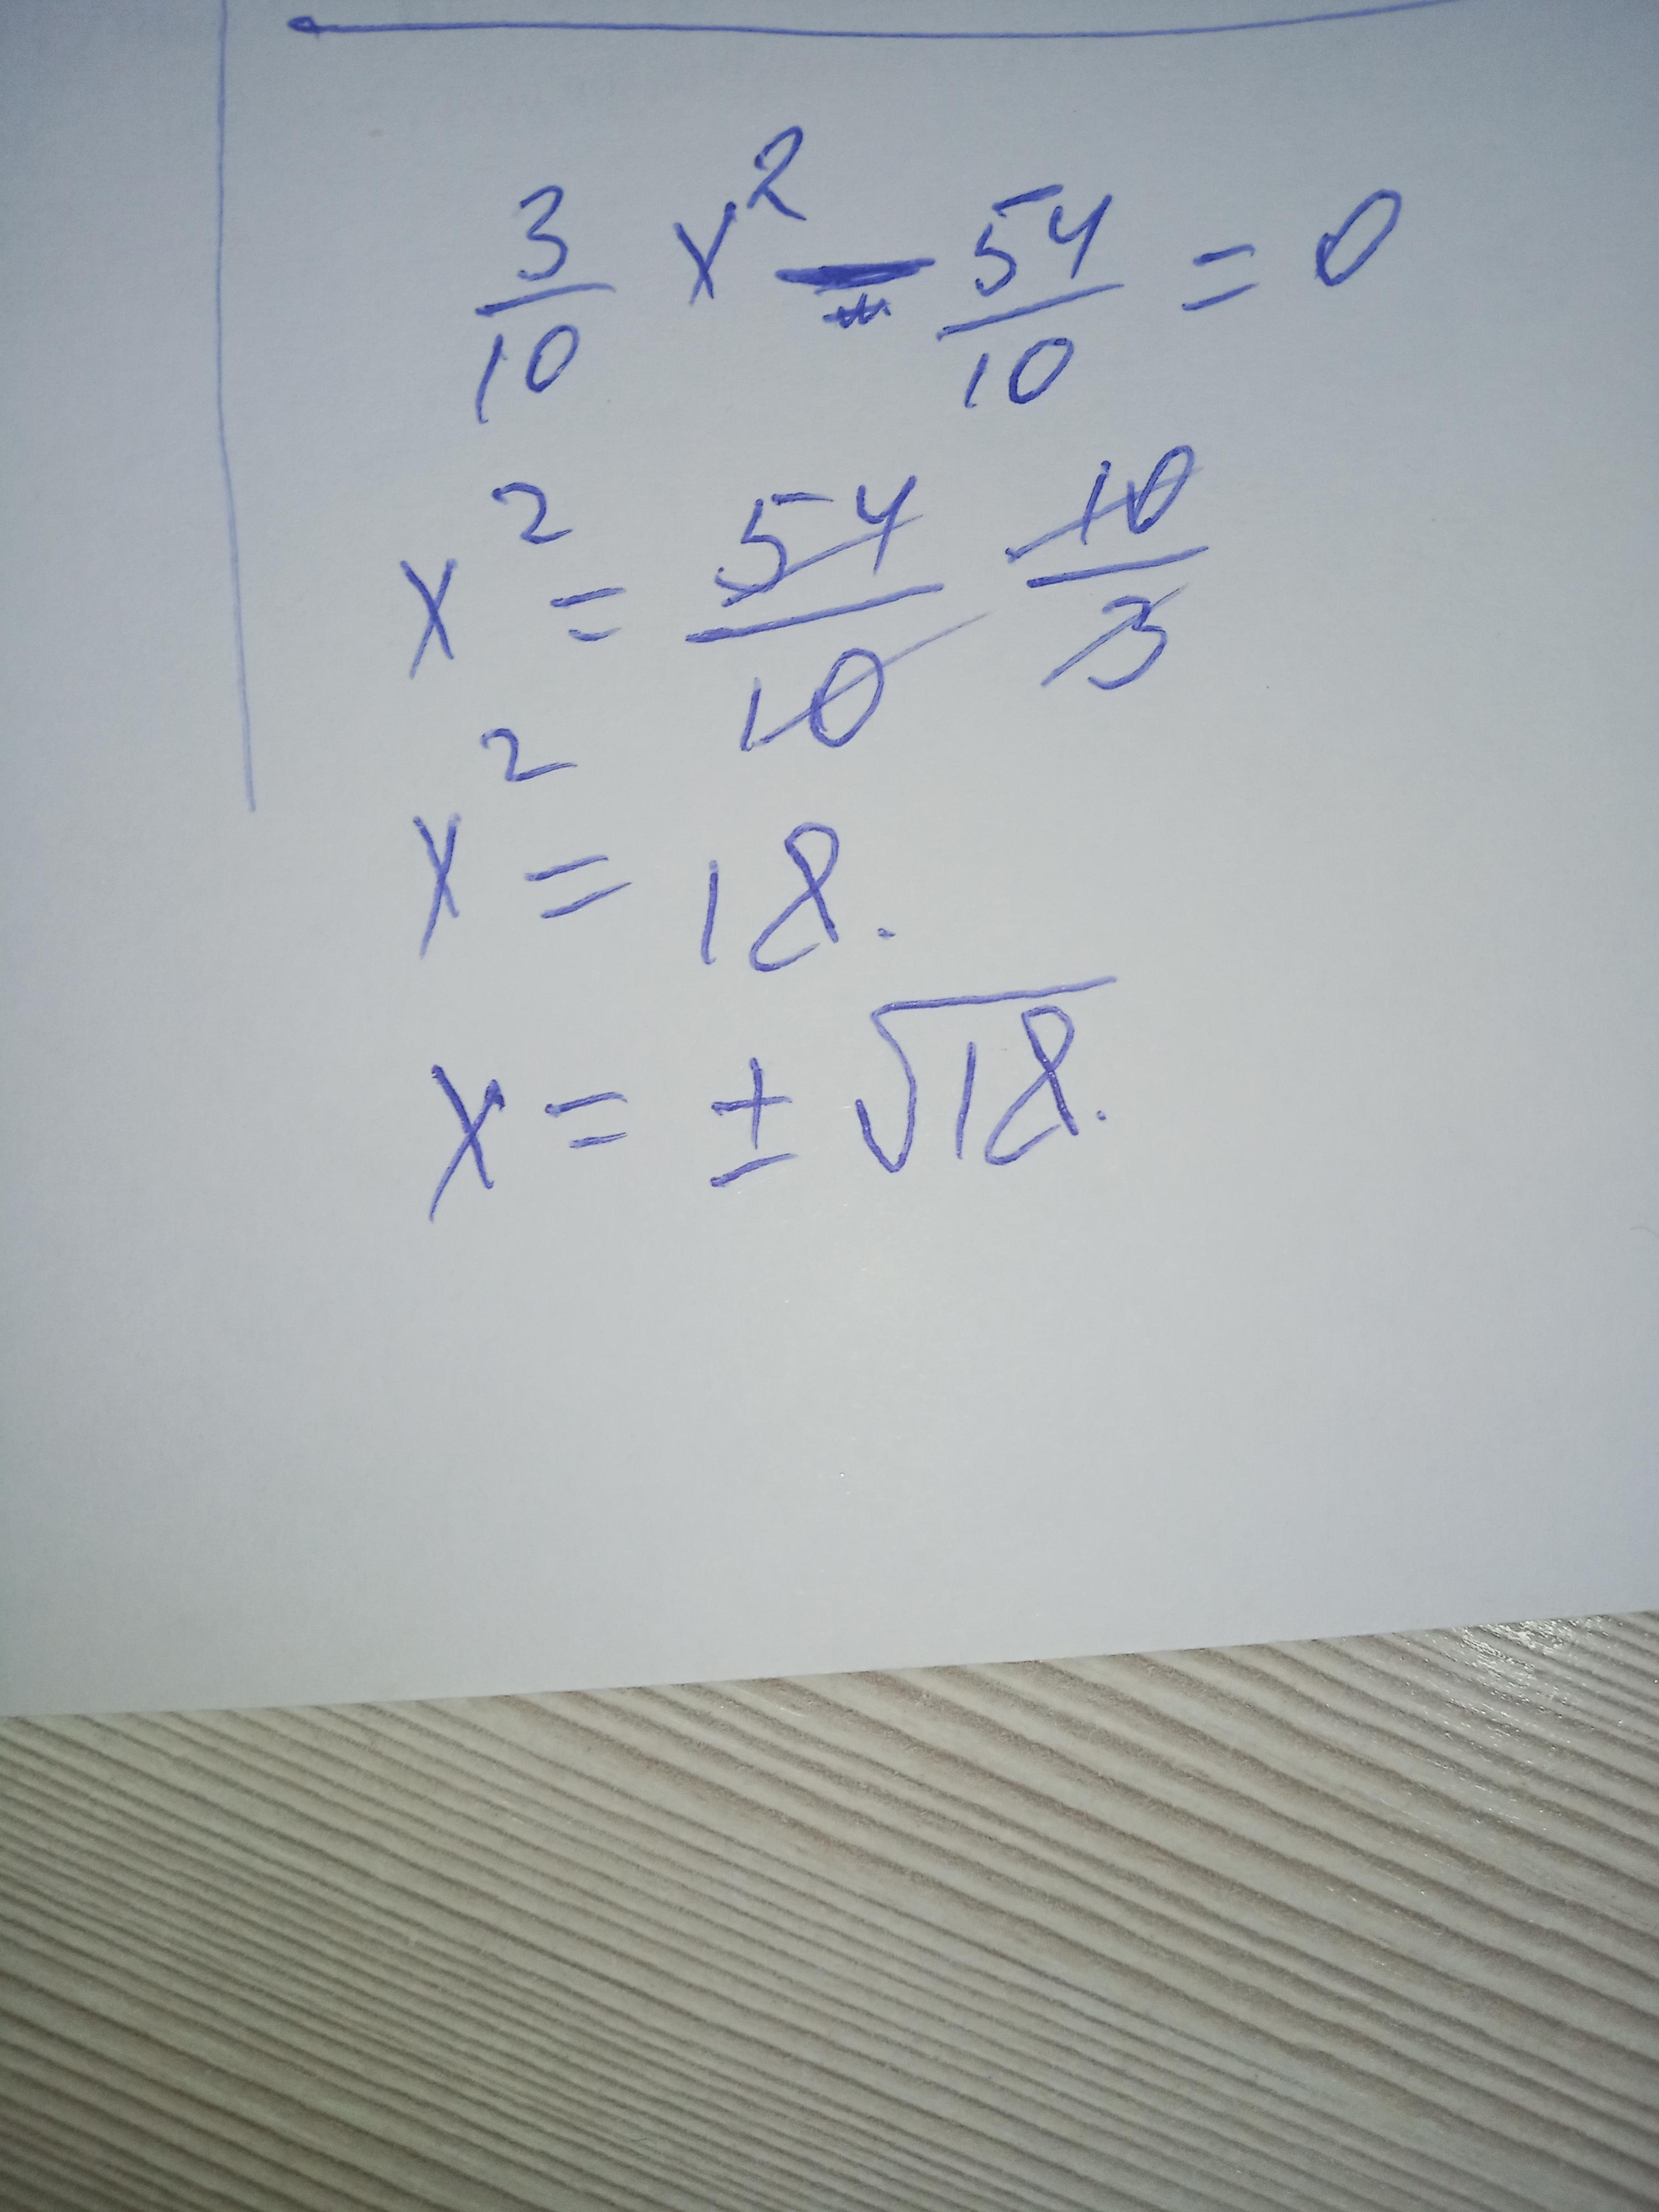 3/10 x² - 54/10 = 0
x² = 54/10 10/3
x² = 18.
x = ± √18.